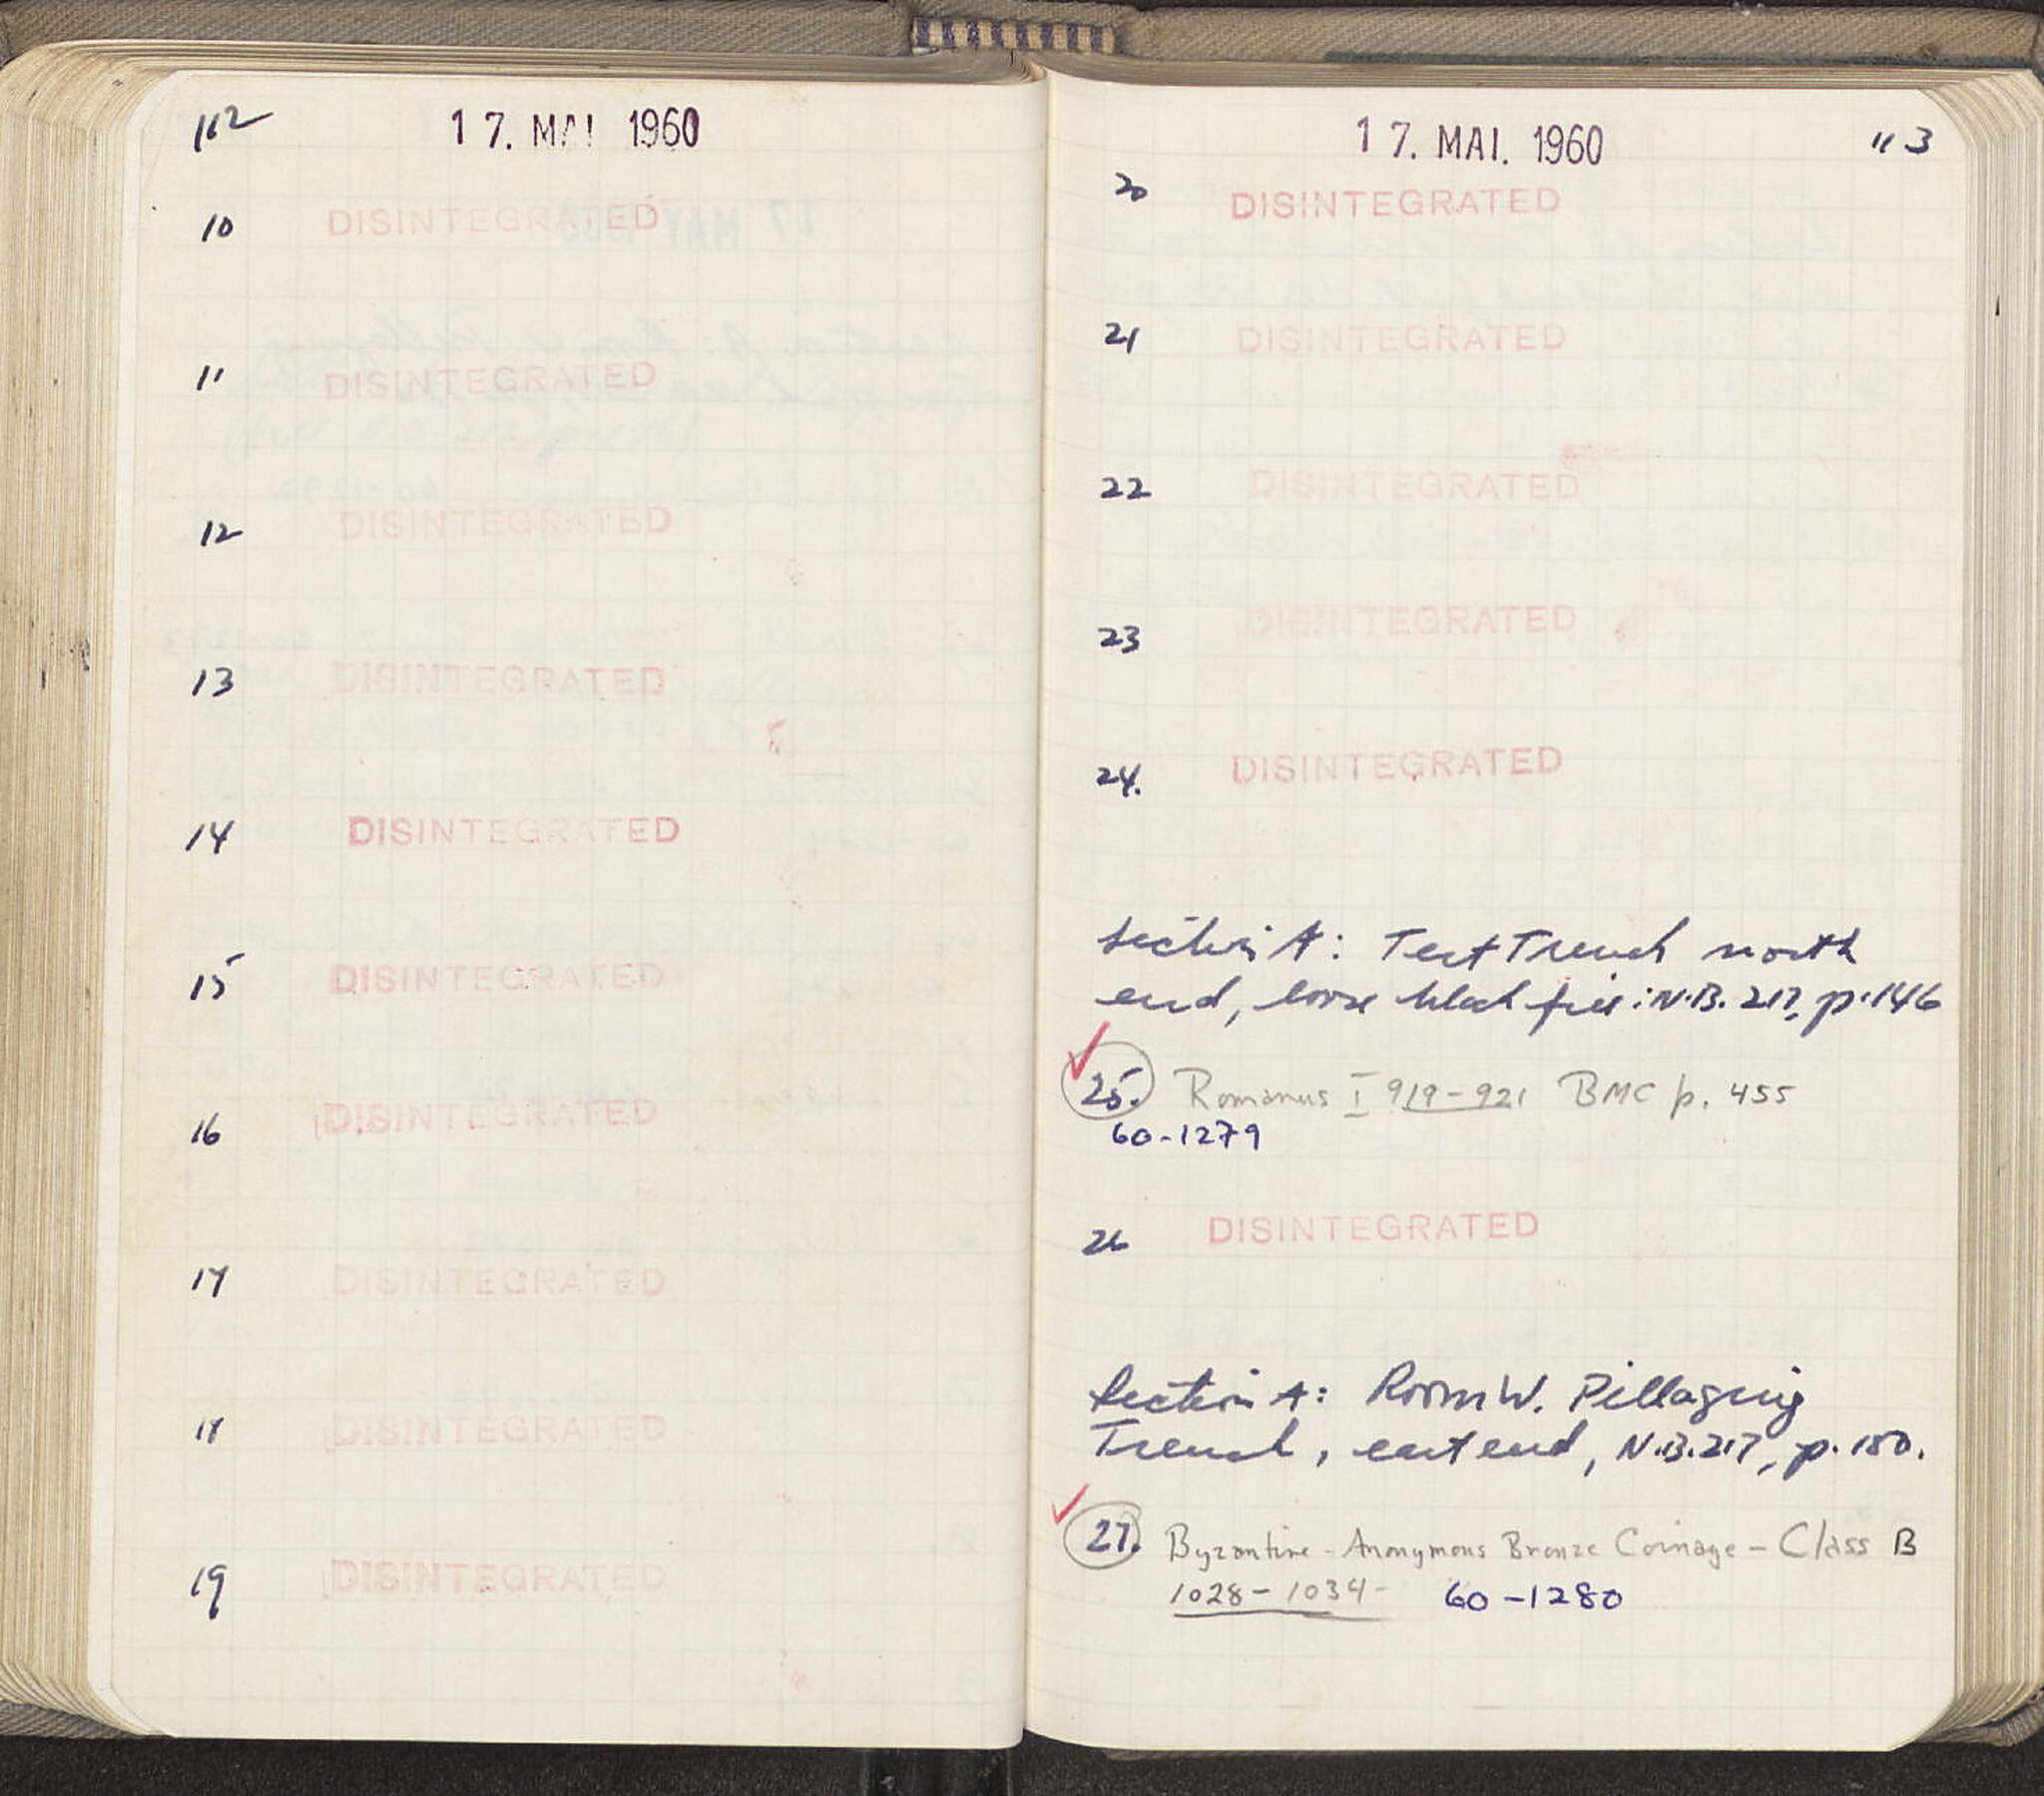 112
17. MAI 1960
10 DISINTEGRATED
11 DISINTEGRATED
12 DISINTEGRATED
13 DISINTEGRATED
14 DISINTEGRATED
15 DISINTEGRATED
16 DISINTEGRATED
17 DISINTEGRATED
18 DISINTEGRATED
19 DISINTEGRATED
17. MAI. 1960
113
20 DISINTEGRATED
21 DISINTEGRATED
22 DISINTEGRATED
23 DISINTEGRATED
24. DISINTEGRATED
Section A: Test Trench north
end, loose black fill: N.B. 217, p. 146
25. Romanus I 919-921 BMC p. 455
60-1279
26 DISINTEGRATED
Section A: Room W. Pillaging
Trench, east end, N.B. 217, p. 150.
27. Byzantine - Anonymous Bronze Coinage - Class B
1028-1034- 60-1280